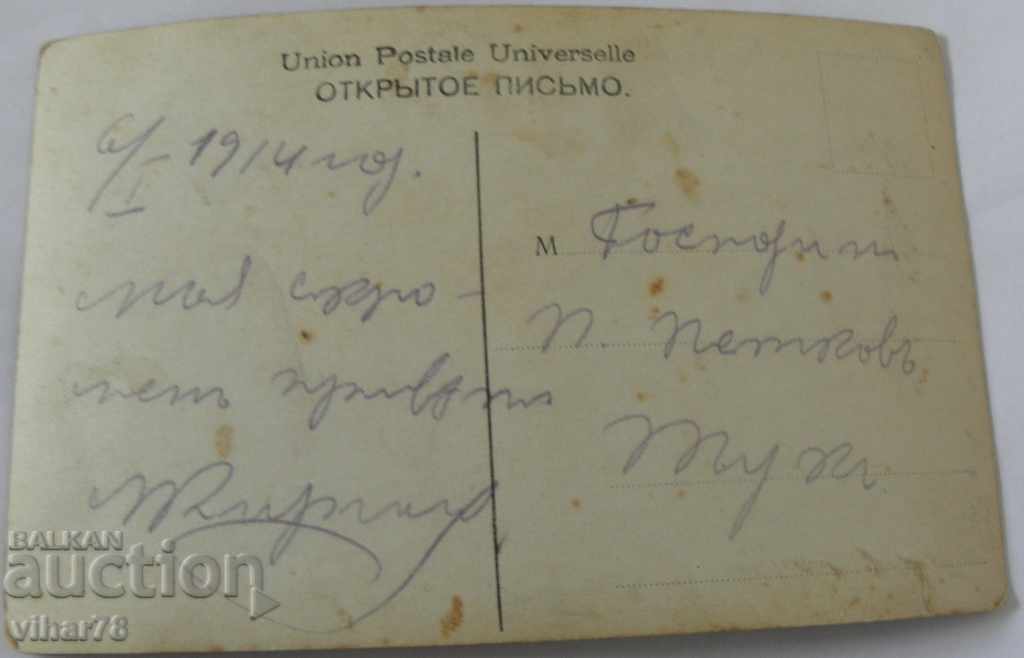 Union Postale Universelle
ОТКРЫТОЕ ПИСЬМО.
6/I – 1914 год.
моя скро-
менъ привѣтъ
М Господин
П. Петковъ
Тукъ
BALKAN
auction
vihar78